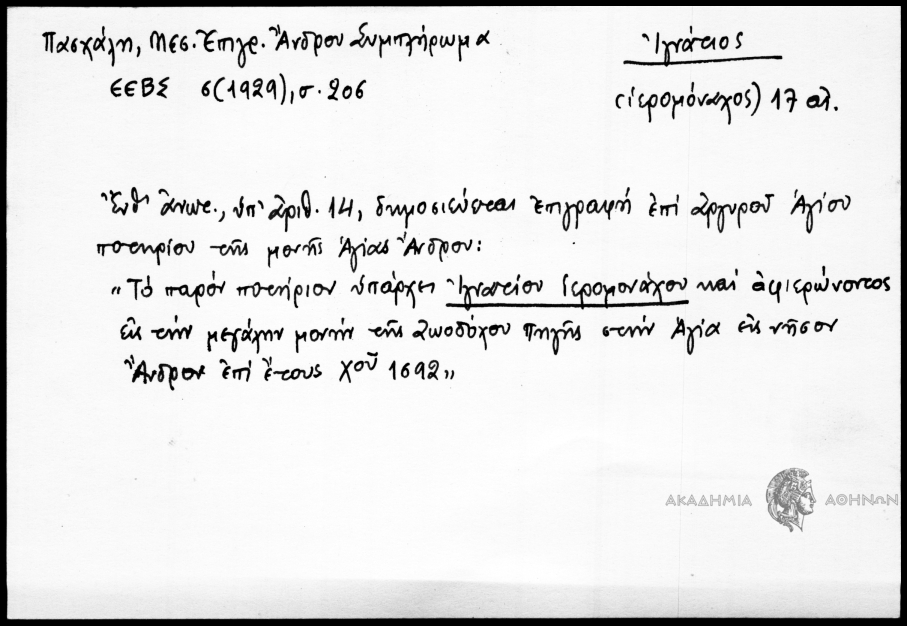 Πασχάλη, Μεσ. Ἐπιγρ. Ἄνδρου Συμπλήρωμα
Ἰγνάτιος
ΕΕΒΣ 6(1929), σ. 206
(ἱερομόναχος) 17 αἰ.
Ἔνθ' ἄνωτ., ὑπ' ἀριθ. 14, δημοσιεύεται ἐπιγραφή ἐπί ἀργυροῦ Ἁγίου
ποτηρίου τῆς μονῆς Ἁγίας Ἄνδρου:
"Τό παρόν ποτήριον ὑπάρχει Ἰγνατίου ἱερομονάχου καί ἀφιερώνοντος
εἰς τήν μεγάλην μονήν τῆς Ζωοδόχου Πηγῆς στήν Ἁγία εἰς νῆσον
Ἄνδρον ἐπί ἔτους χοῦ 1692"
ΑΚΑΔΗΜΙΑ ΑΘΗΝΩΝ